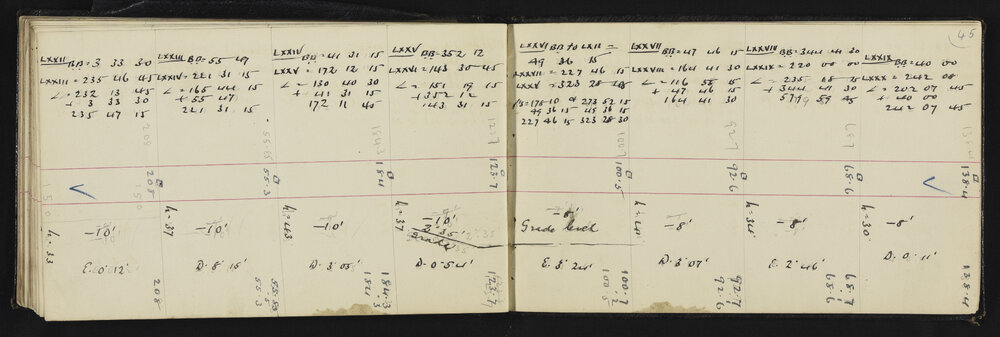 45
LXXII BB=3 33 30
LXXIII = 235 46 45
∠ = 232 13 45
+ 3 33 30
235 47 15
LXXIII BB=55 47
LXXIV = 221 31 15
∠ = 165 44 15
+ 55 47
221 31 15
LXXIV BB=41 31 15
LXXV = 172 12 15
∠ = 130 40 30
+ 41 31 15
172 11 45
LXXV BB=352 12
LXXVI = 143 30 45
∠ = 151 19 15
+ 352 12
143 31 15
LXXVI BB to LXII =
49 36 15
LXXVII = 227 46 15
LXXV = 323 28
178 10 & 273 52 15
49 36 15 49 36 15
227 46 15 323 28 30
LXXVII BB=47 46 15
LXXVIII = 164 41 30
∠ = 116 55 15
+ 47 46 15
164 41 30
LXXVIII BB=344 41 30
LXXIX = 220 00 00
∠ = 235 18 15
+ 344 41 30
579 59 45
LXXIX BB=40 00
LXXX = 242 08
∠ = 202 07 45
+ 40 00
242 07 45
208
55.3
184
123.7
100.5
92.6
68.6
138.4
h=33
-10'
E. 0' 12'
h=37
-10'
D. 8' 15'
h=43
-10'
D. 3' 03'
h=37
-10'
2' 35'
grade
D. 0' 54'
-8'
Grade level
E. 3' 24'
-8'
D. 3' 07'
h=34
-8'
E. 2' 46'
h=30
-8'
D. 0' 11'
208
55.3
184.3
184
123.7
100.7
.2
100.5
92.7
92.6
68.7
68.6
138.4